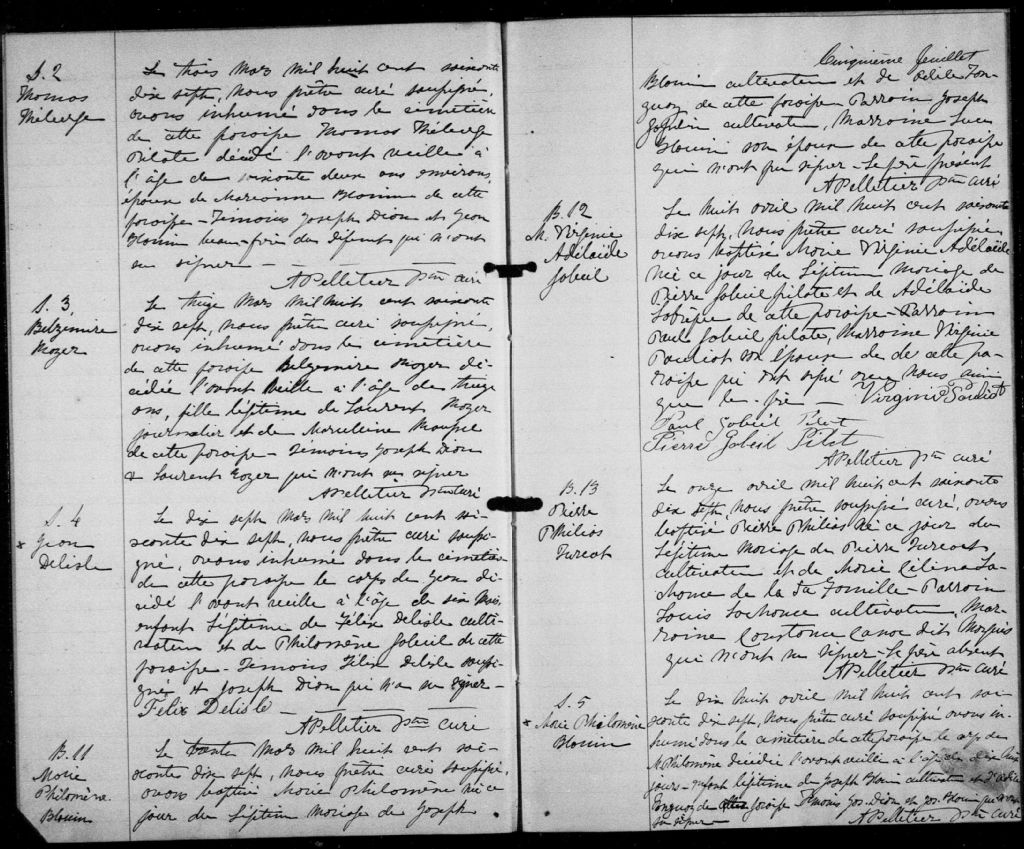 S. 2
Thomas
Théberge
Le trois Mars mil huit cent soixante
dix sept, nous prêtre curé soussigné,
avons inhumé dans le cimetière
de cette paroisse Thomas Théberge
Pilote décédé l'avant veille à
l'âge de soixante deux ans environs,
époux de Marianne Blouin de cette
paroisse - Témoins Joseph Dion et Jean
Blouin beau-frère du défunt qui n'ont
su signer -
A Pelletier Ptre curé
S. 3
Belzemire
Noyer
Le Mars mil huit cent soixante
dix sept, nous prêtre curé soussigné,
avons inhumé dans le cimetière
de cette paroisse Belzemire dé-
cédée l'avant veille à l'âge de
ans, fille légitime de Laurent
journalier et de Marcelline
de cette paroisse - Témoins Joseph Dion
& Laurent qui n'ont su signer
A Pelletier Ptre curé
S. 4
Jean
Delisle
Le dix sept Mars mil huit cent soi-
xante dix sept, nous prêtre curé soussi-
gné, avons inhumé dans le cimetière
de cette paroisse le corps de Jean dé-
cédé l'avant veille à l'âge de six mois
enfant légitime de Félix Delisle culti-
vateur et de Philomène Gobeil de cette
paroisse - Témoins Félix Delisle soussi-
gné et Joseph Dion qui n'a su signer -
Felix Delisle -
A Pelletier Ptre curé
B. 11
Marie
Philomène
Blouin
Le trente Mars mil huit cent soi-
xante dix sept, nous prêtre curé soussigné,
avons baptisé Marie Philomène née ce
jour du légitime mariage de Joseph
Cinquième feuillet
Blouin cultivateur et de
de cette paroisse Parrain Joseph
cultivateur, Marraine Luce
Blouin son épouse de cette paroisse
qui n'ont pu signer - Le père présent
A Pelletier Ptre curé
B. 12
M. Virginie
Adélaïde
Gobeil
Le huit avril mil huit cent soixante
dix sept, nous prêtre curé soussigné
avons baptisé Marie Virginie Adélaïde
née ce jour du légitime mariage de
Pierre Gobeil pilote et de Adélaïde
de cette paroisse - Parrain
Paul Gobeil pilote, Marraine Virginie
Pouliot son épouse de de cette pa-
roisse qui ont signé avec nous ainsi
que le père - Virginie Pouliot
Paul Gobeil Pilot
Pierre Gobeil Pilot
A Pelletier Ptre curé
B. 13
Pierre
Philias
Turcot
Le onze avril mil huit cent soixante
dix sept, nous prêtre soussigné curé, avons
baptisé Pierre Philias né ce jour du
légitime mariage de Pierre Turcot
cultivateur et de Marie Célina La-
chance de la Ste Famille - Parrain
Louis Lachance cultivateur, Mar-
raine Constance Canac dit Marquis
qui n'ont su signer - le père absent
A Pelletier Ptre curé
S. 5
Marie Philomène
Blouin
Le dix huit avril mil huit cent soi-
xante dix sept, nous prêtre curé soussigné avons in-
humé dans le cimetière de cette paroisse le corps de
M Philomène décédée l'avant veille à l'âge de dix
jours - enfant légitime de Joseph Blouin cultivateur et
de cette paroisse Témoins Jos. Dion et Jos. Blouin qui
su signer -
A Pelletier Ptre curé